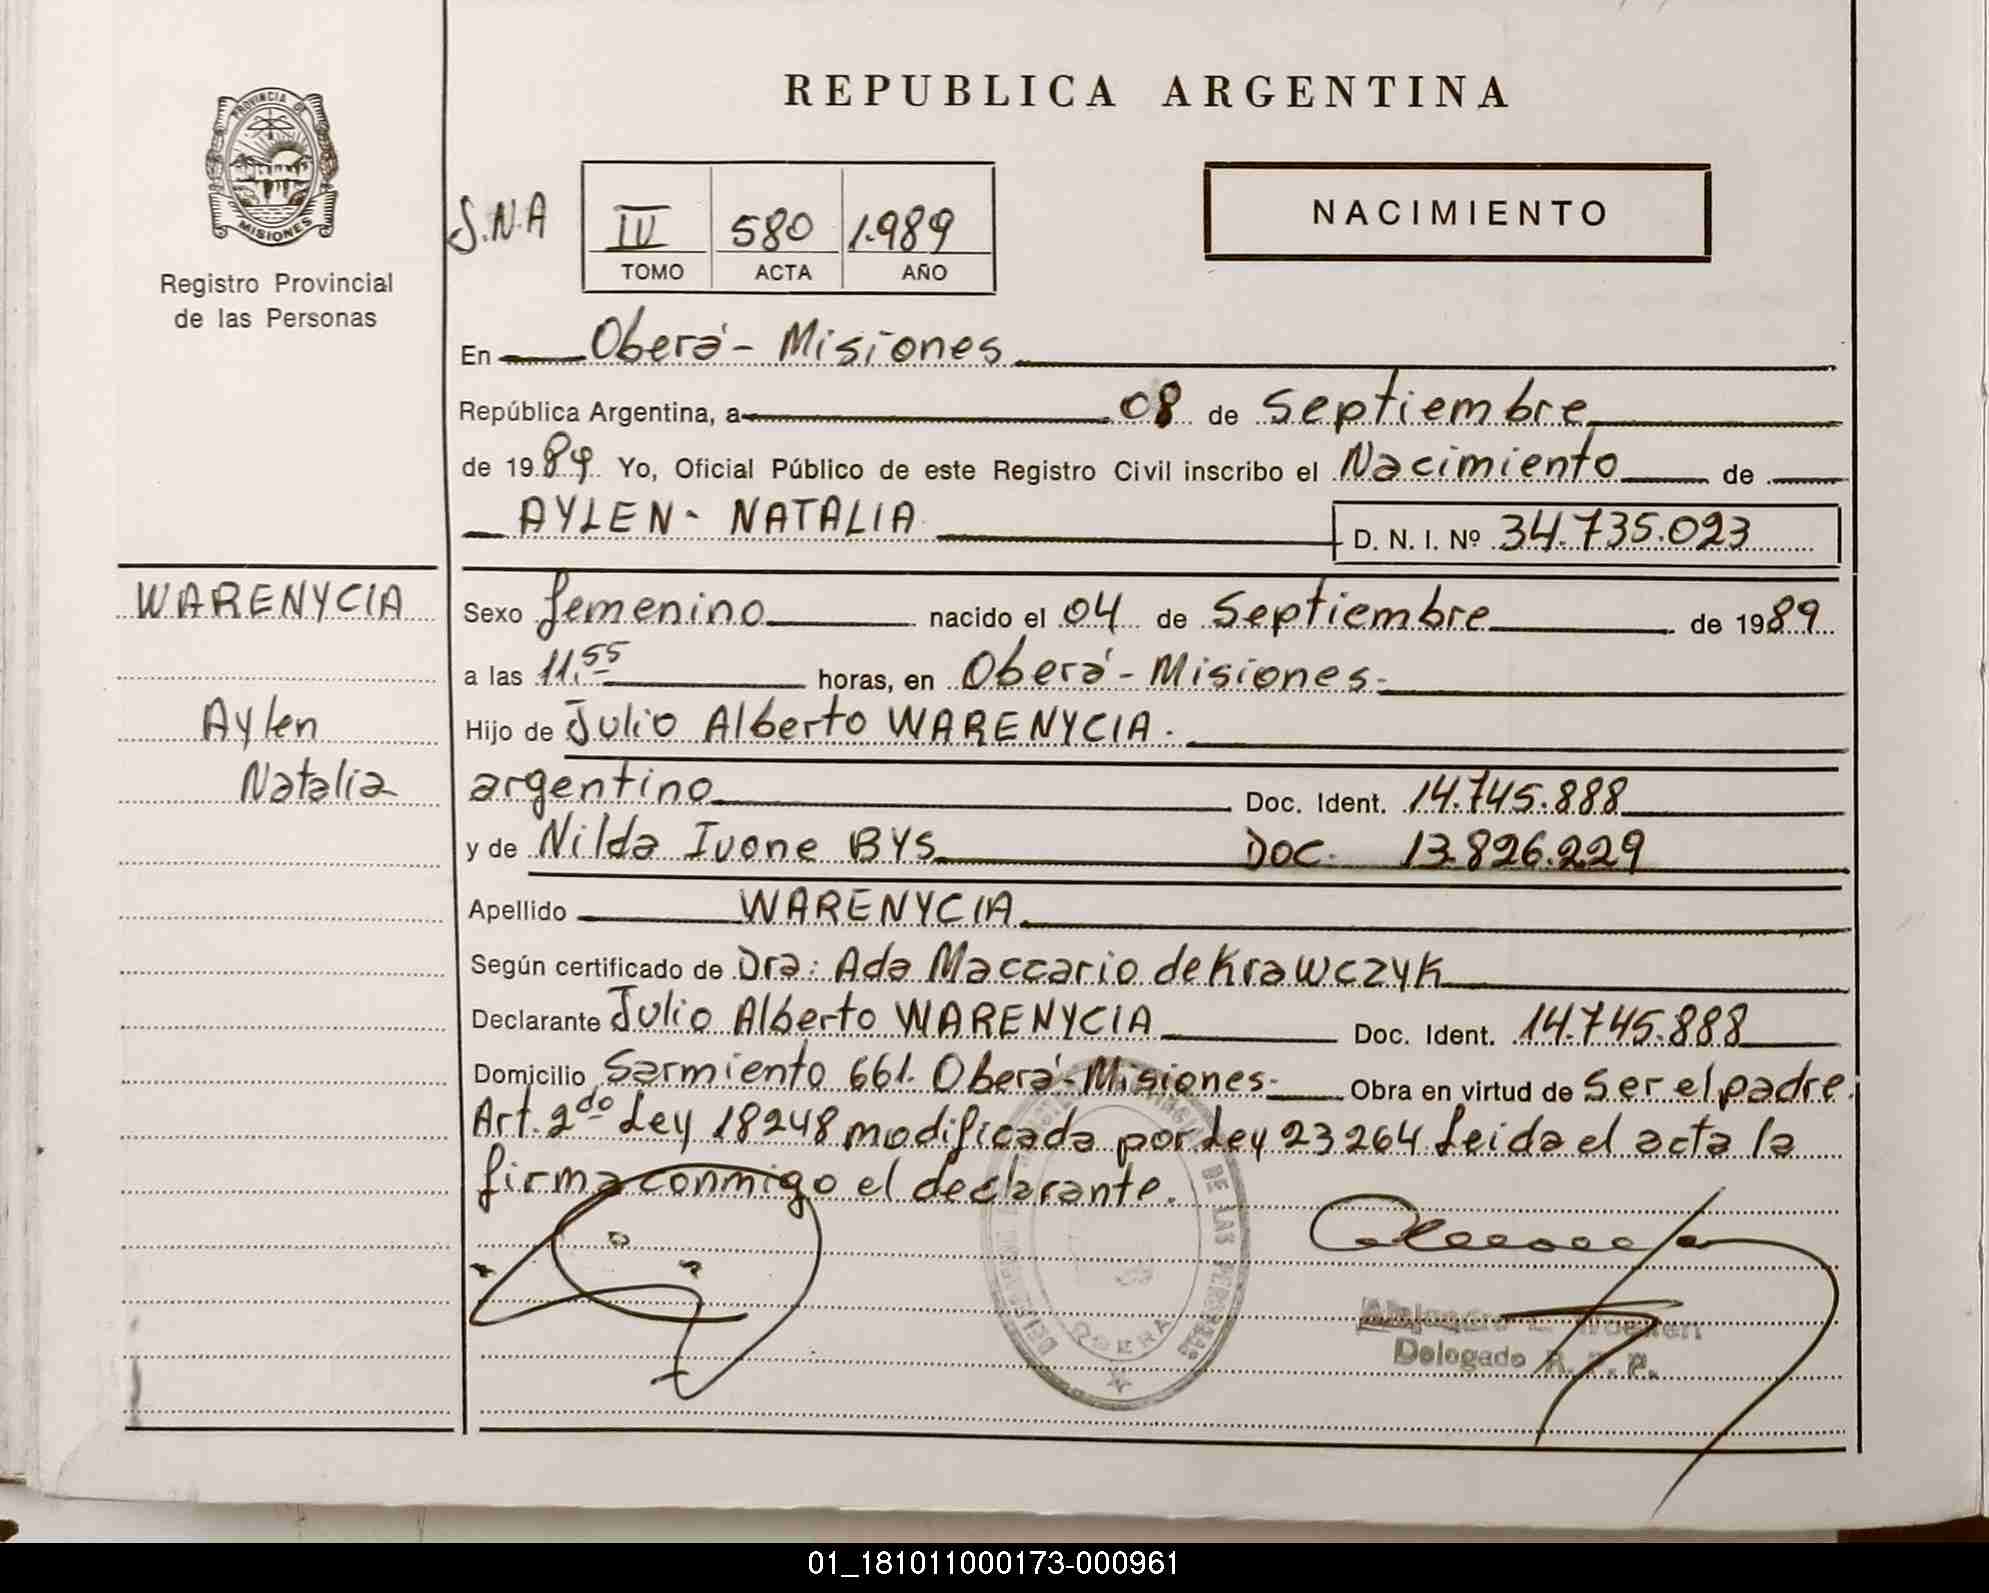 REPUBLICA ARGENTINA
PROVINCIA DE
MISIONES
Registro Provincial
de las Personas
S.N.A
IV 580 1.989
TOMO ACTA AÑO
NACIMIENTO
En Oberá - Misiones
República Argentina, a 08 de Septiembre
de 1989 Yo, Oficial Público de este Registro Civil inscribo el Nacimiento de
AYLEN - NATALIA
D. N. I. Nº 34.735.023
WARENYCIA
Aylen
Natalia
Sexo femenino nacido el 04 de Septiembre de 1989
a las 11,55 horas, en Oberá - Misiones.-
Hijo de Julio Alberto WARENYCIA.
argentino Doc. Ident. 14.745.888
y de Nilda Ivone BYS DOC. 13.826.229
Apellido WARENYCIA
Según certificado de Dra: Ada Maccario de Krawczyk
Declarante Julio Alberto WARENYCIA Doc. Ident. 14.745.888
Domicilio Sarmiento 661. Oberá - Misiones.- Obra en virtud de Ser el padre.
Art. 2do Ley 18248 modificada por Ley 23264 Leida el acta la
firma conmigo el declarante.
DE LAS PERSONAS
OBERA
Delegado R. P. P.
01_181011000173-000961